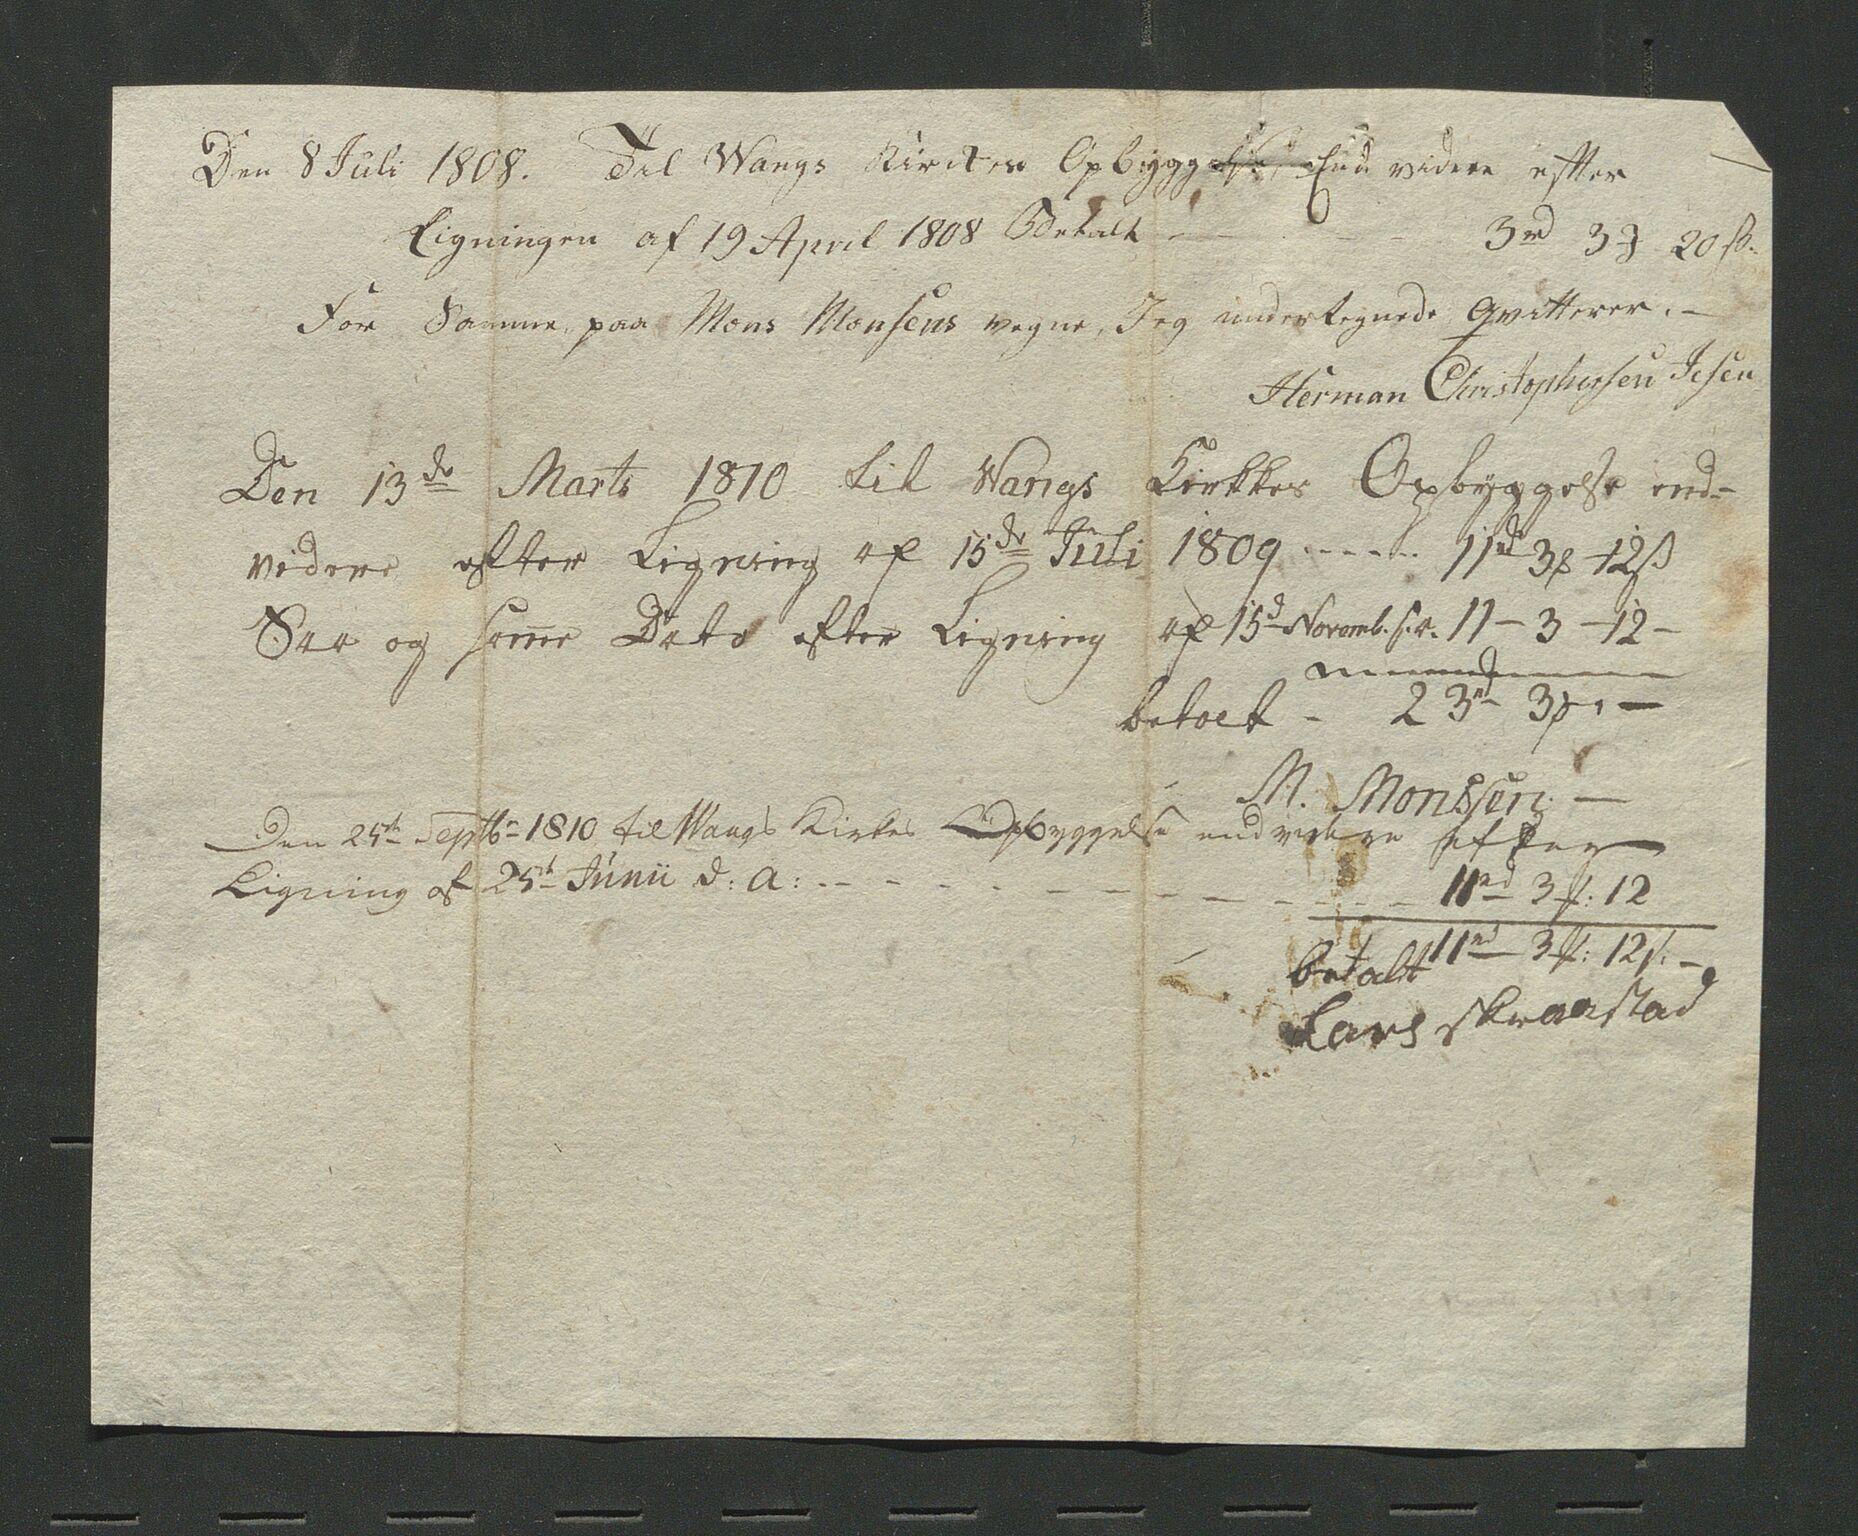 Den 8 Juli 1808. Til Wangs Kirckes Opbyggelse End videre efter
Ligningen af 19 April 1808 Betalt - - - 3 rd 3 ʒ 20 ß.
For Samme, paa Mons Monsens vegne, Jeg undertegnede Qvitterer. -
Herman Christophersen
Den 13de Marts 1810 til Wangs Kirkkes Opbyggelse end-
videre efter Ligning af 15de Juli 1809 ------ 11rd 3 ʒ 12 ß
Saa og same Dato efter Ligning af 15d Novemb. s.a. 11 - 3 - 12 -
betalt - 23rd 3 ʒ. -
M. Monssen. -
Den 25te Septbr 1810 til Wangs Kirkes Opbyggelse endvidere efter
Ligning af 25t Junii d: a: - - - - - - - - - 11rd 3 ʒ: 12
betalt 11rd 3 ʒ: 12 ß. -
Lars Skraastad